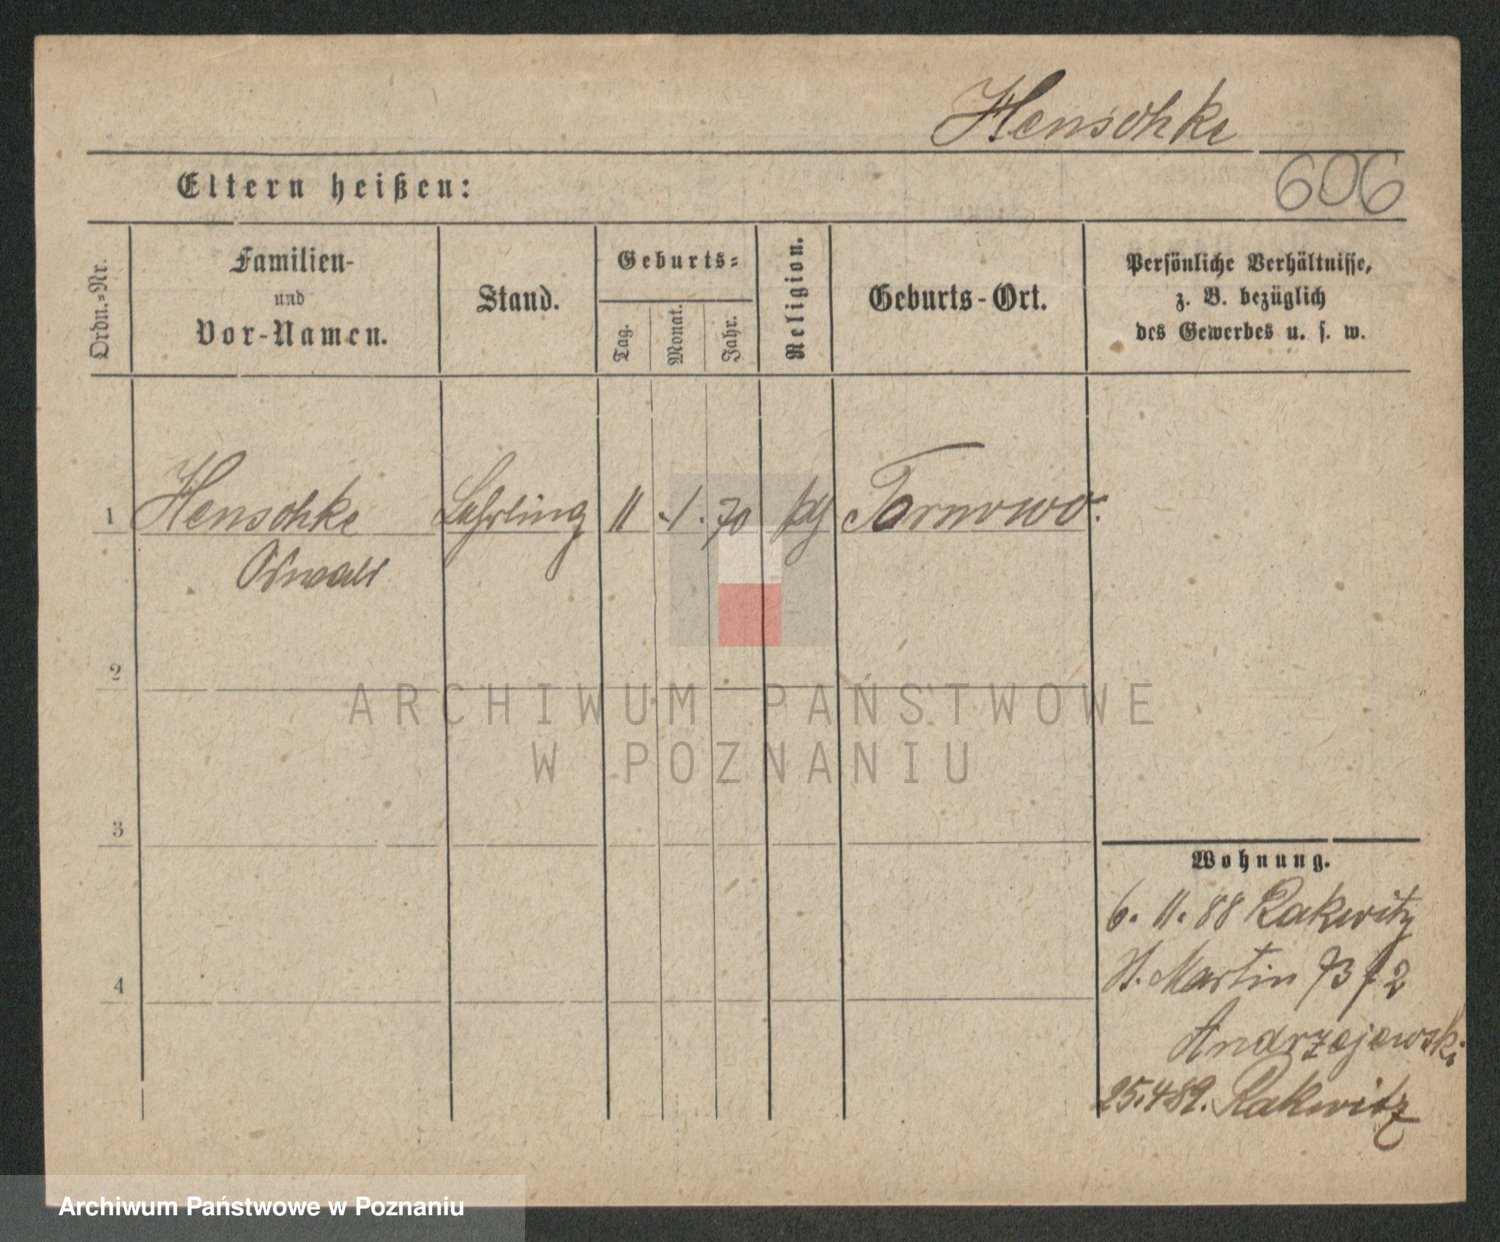 Henschke
606
Eltern heißen:
Ordn.=Nr.
Familien-
und
Vor-Namen.
Stand.
Geburts=
Tag.
Monat.
Jahr.
Religion.
Geburts-Ort.
Persönliche Verhältnisse,
z. B. bezüglich
des Gewerbes u. s. w.
1 Henschke Lehrling 11 .1. 70 Tornowo.
2
3
4
Wohnung.
6. 11. 88 Rakwitz
St. Martin 73 f 2
Andrzejewski
25.4 89. Rakwitz
ARCHIWUM PAŃSTWOWE
W POZNANIU
Archiwum Państwowe w Poznaniu